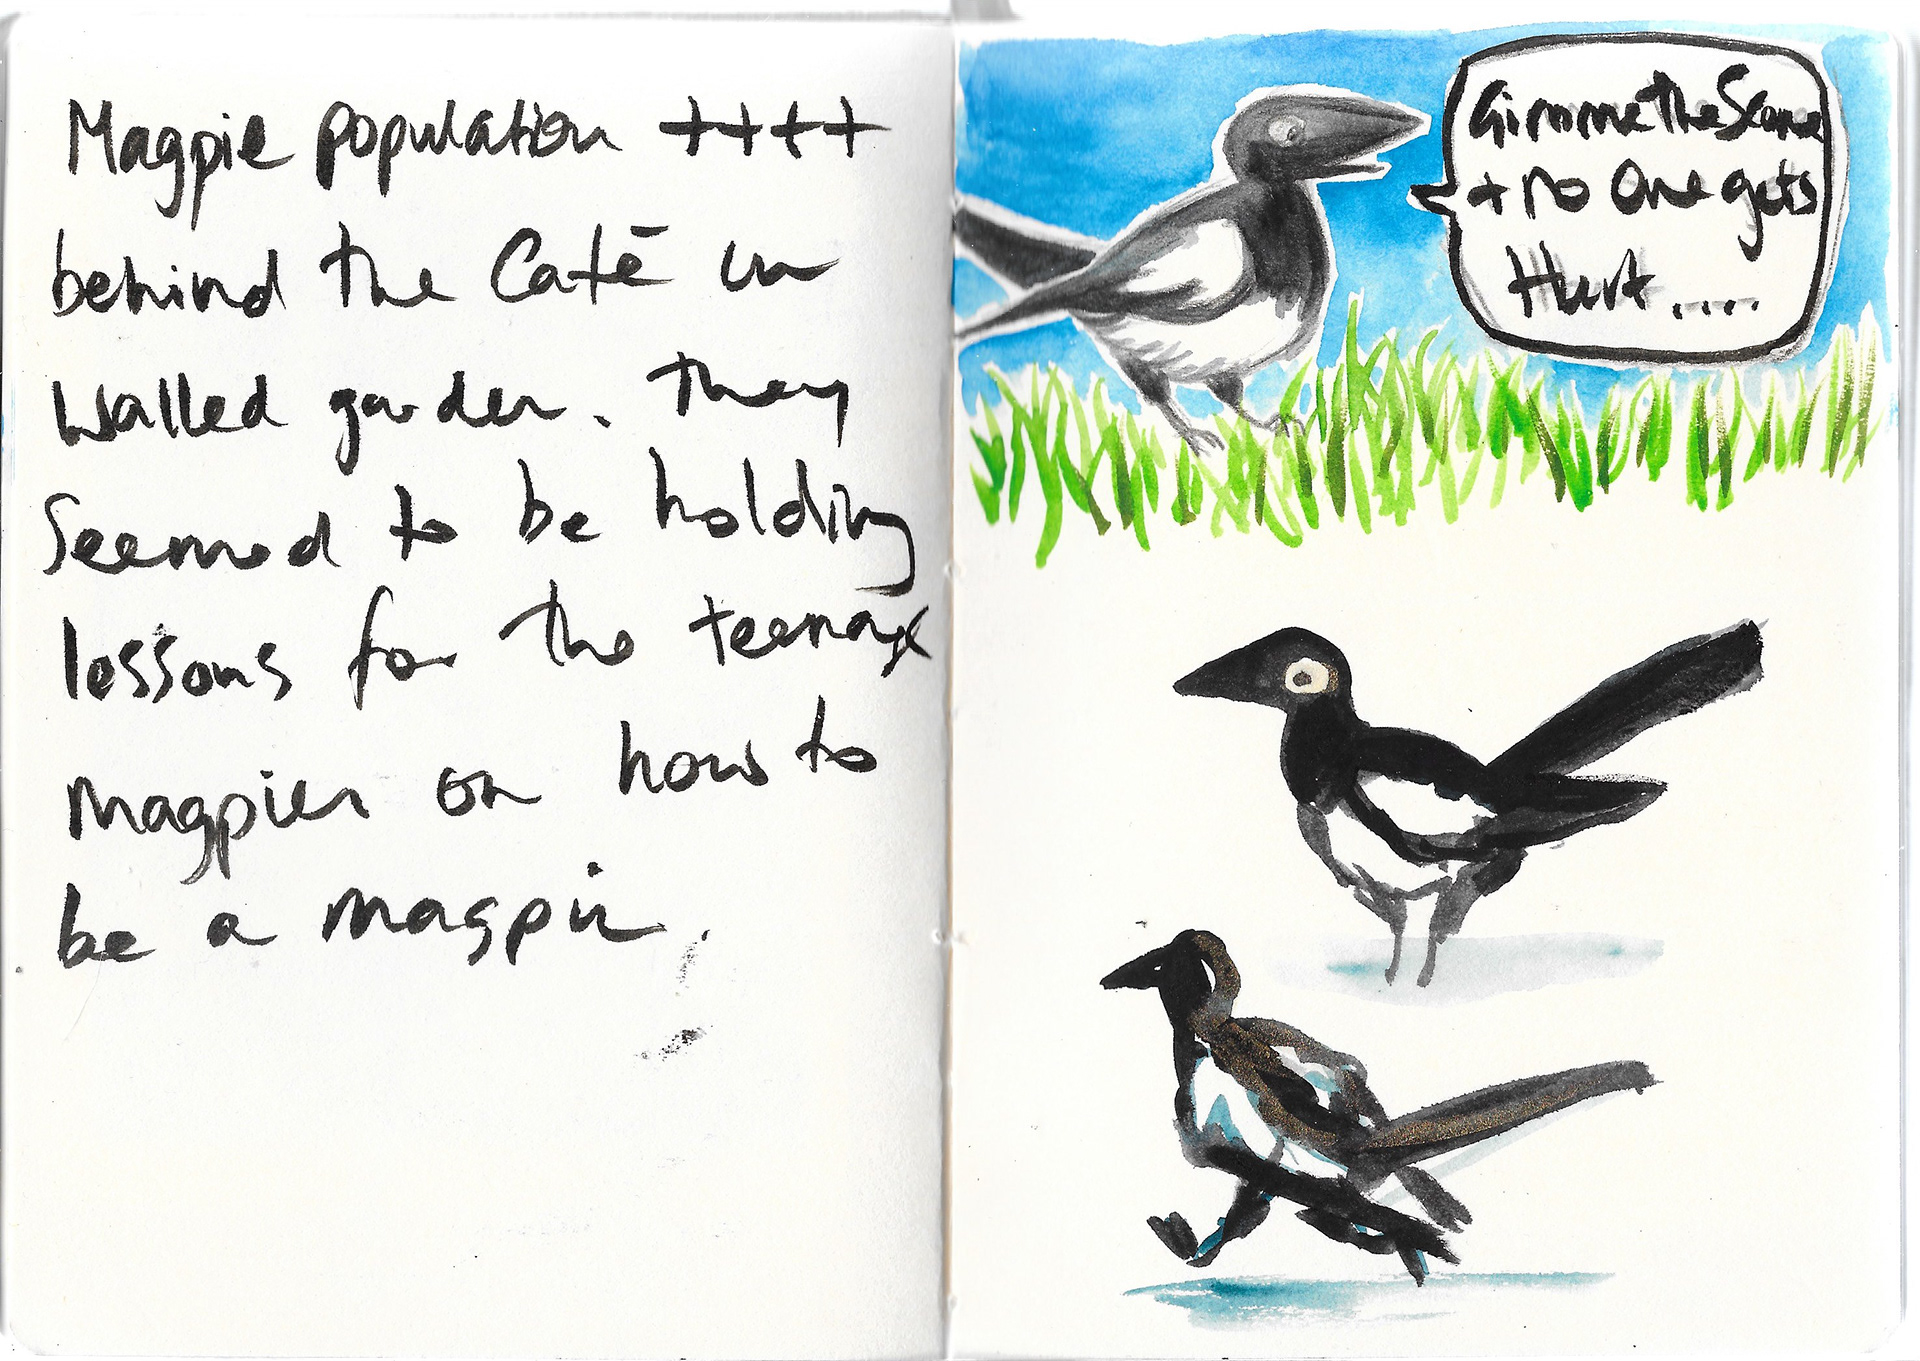 Magpie population ++++
behind the Café in
walled garden. They
seemed to be holding
lessons for the teenage
magpies on how to
be a magpie.
Gimme the Scone
+ no one gets
Hurt....